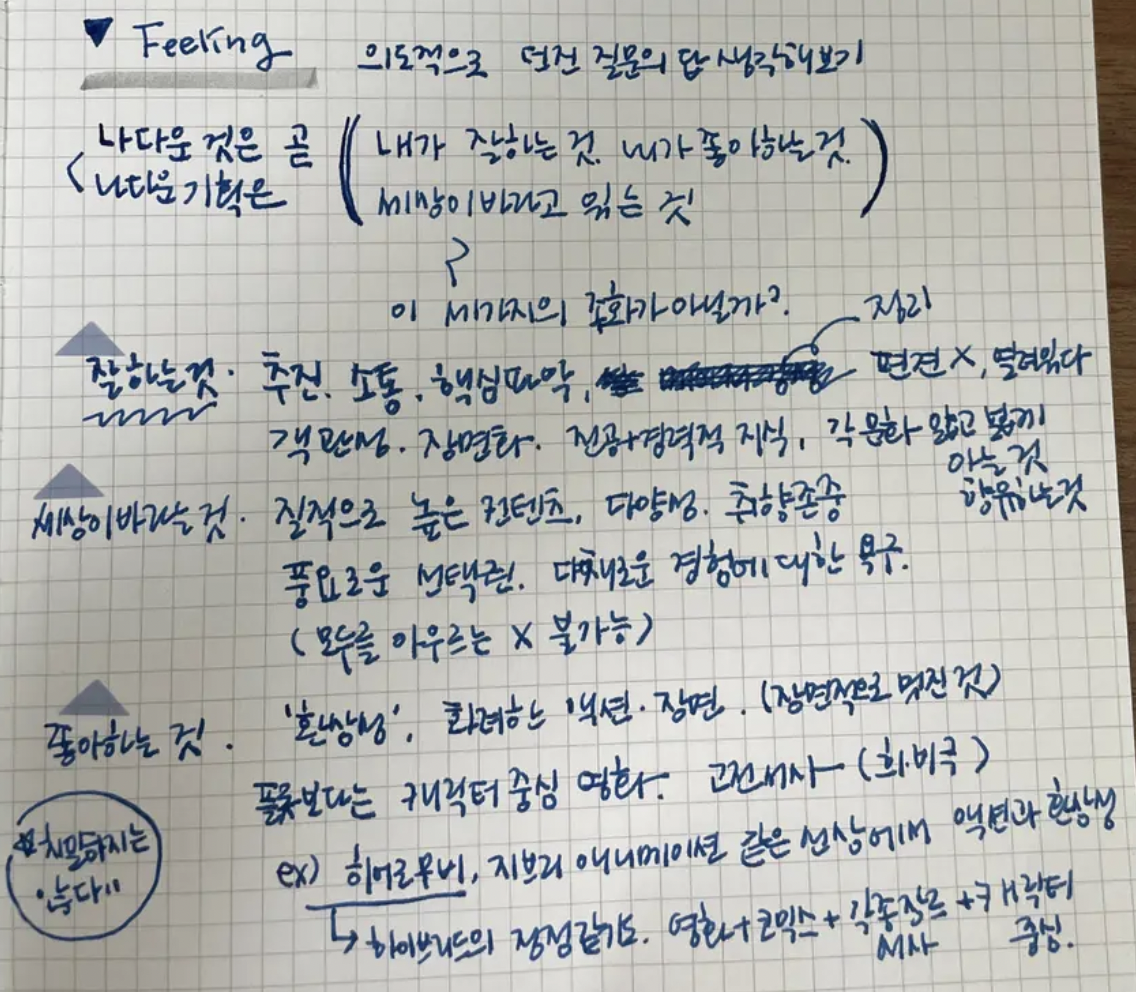 ▼ Feeling 의도적으로 던진 질문의 답 생각해보기
나다운 것은 곧 ( 내가 잘하는 것. 내가 좋아하는 것.
나다운 기획은 세상이 바라고 있는 것 )
?
이 세가지의 조화가 아닐까?
정리
잘하는 것. 추진. 소통. 핵심파악, 편견 X, 열려있다
객관성. 장면화. 전공+경력적 지식, 각 문화 얇고 넓게
아는 것
향유하는 것
세상이 바라는 것. 질적으로 높은 컨텐츠, 다양성. 취향존중
풍요로운 선택권. 다채로운 경험에 대한 욕구.
(모두를 아우르는 X 불가능)
좋아하는 것. '환상성', 화려한 액션. 장면. (장면적으로 멋진 것)
플롯보다는 캐릭터 중심 영화. 고전서사 (희.비극)
치밀하지는
않다"
ex) 히어로무비, 지브리 애니메이션 같은 선상에서 액션과 환상성
↳ 하이브리드의 장점같기도. 영화+코믹스+각종장르+캐릭터
서사 중심.